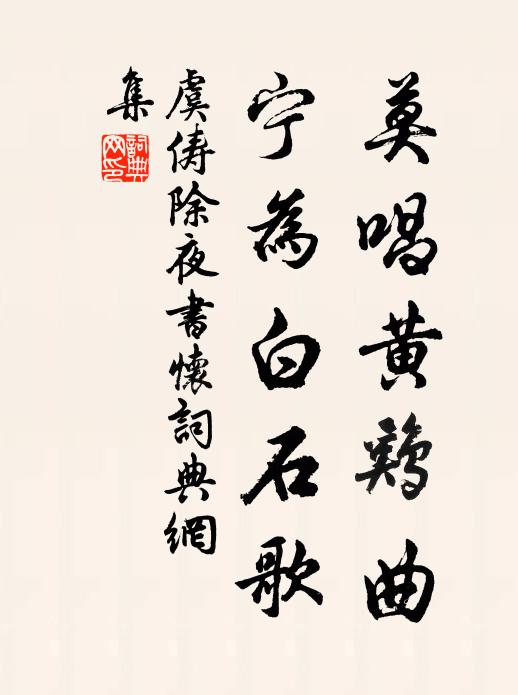 莫唱黄鷄曲
宁為白石歌
虞儔除夜書懷詞典網
集
詞典
网印